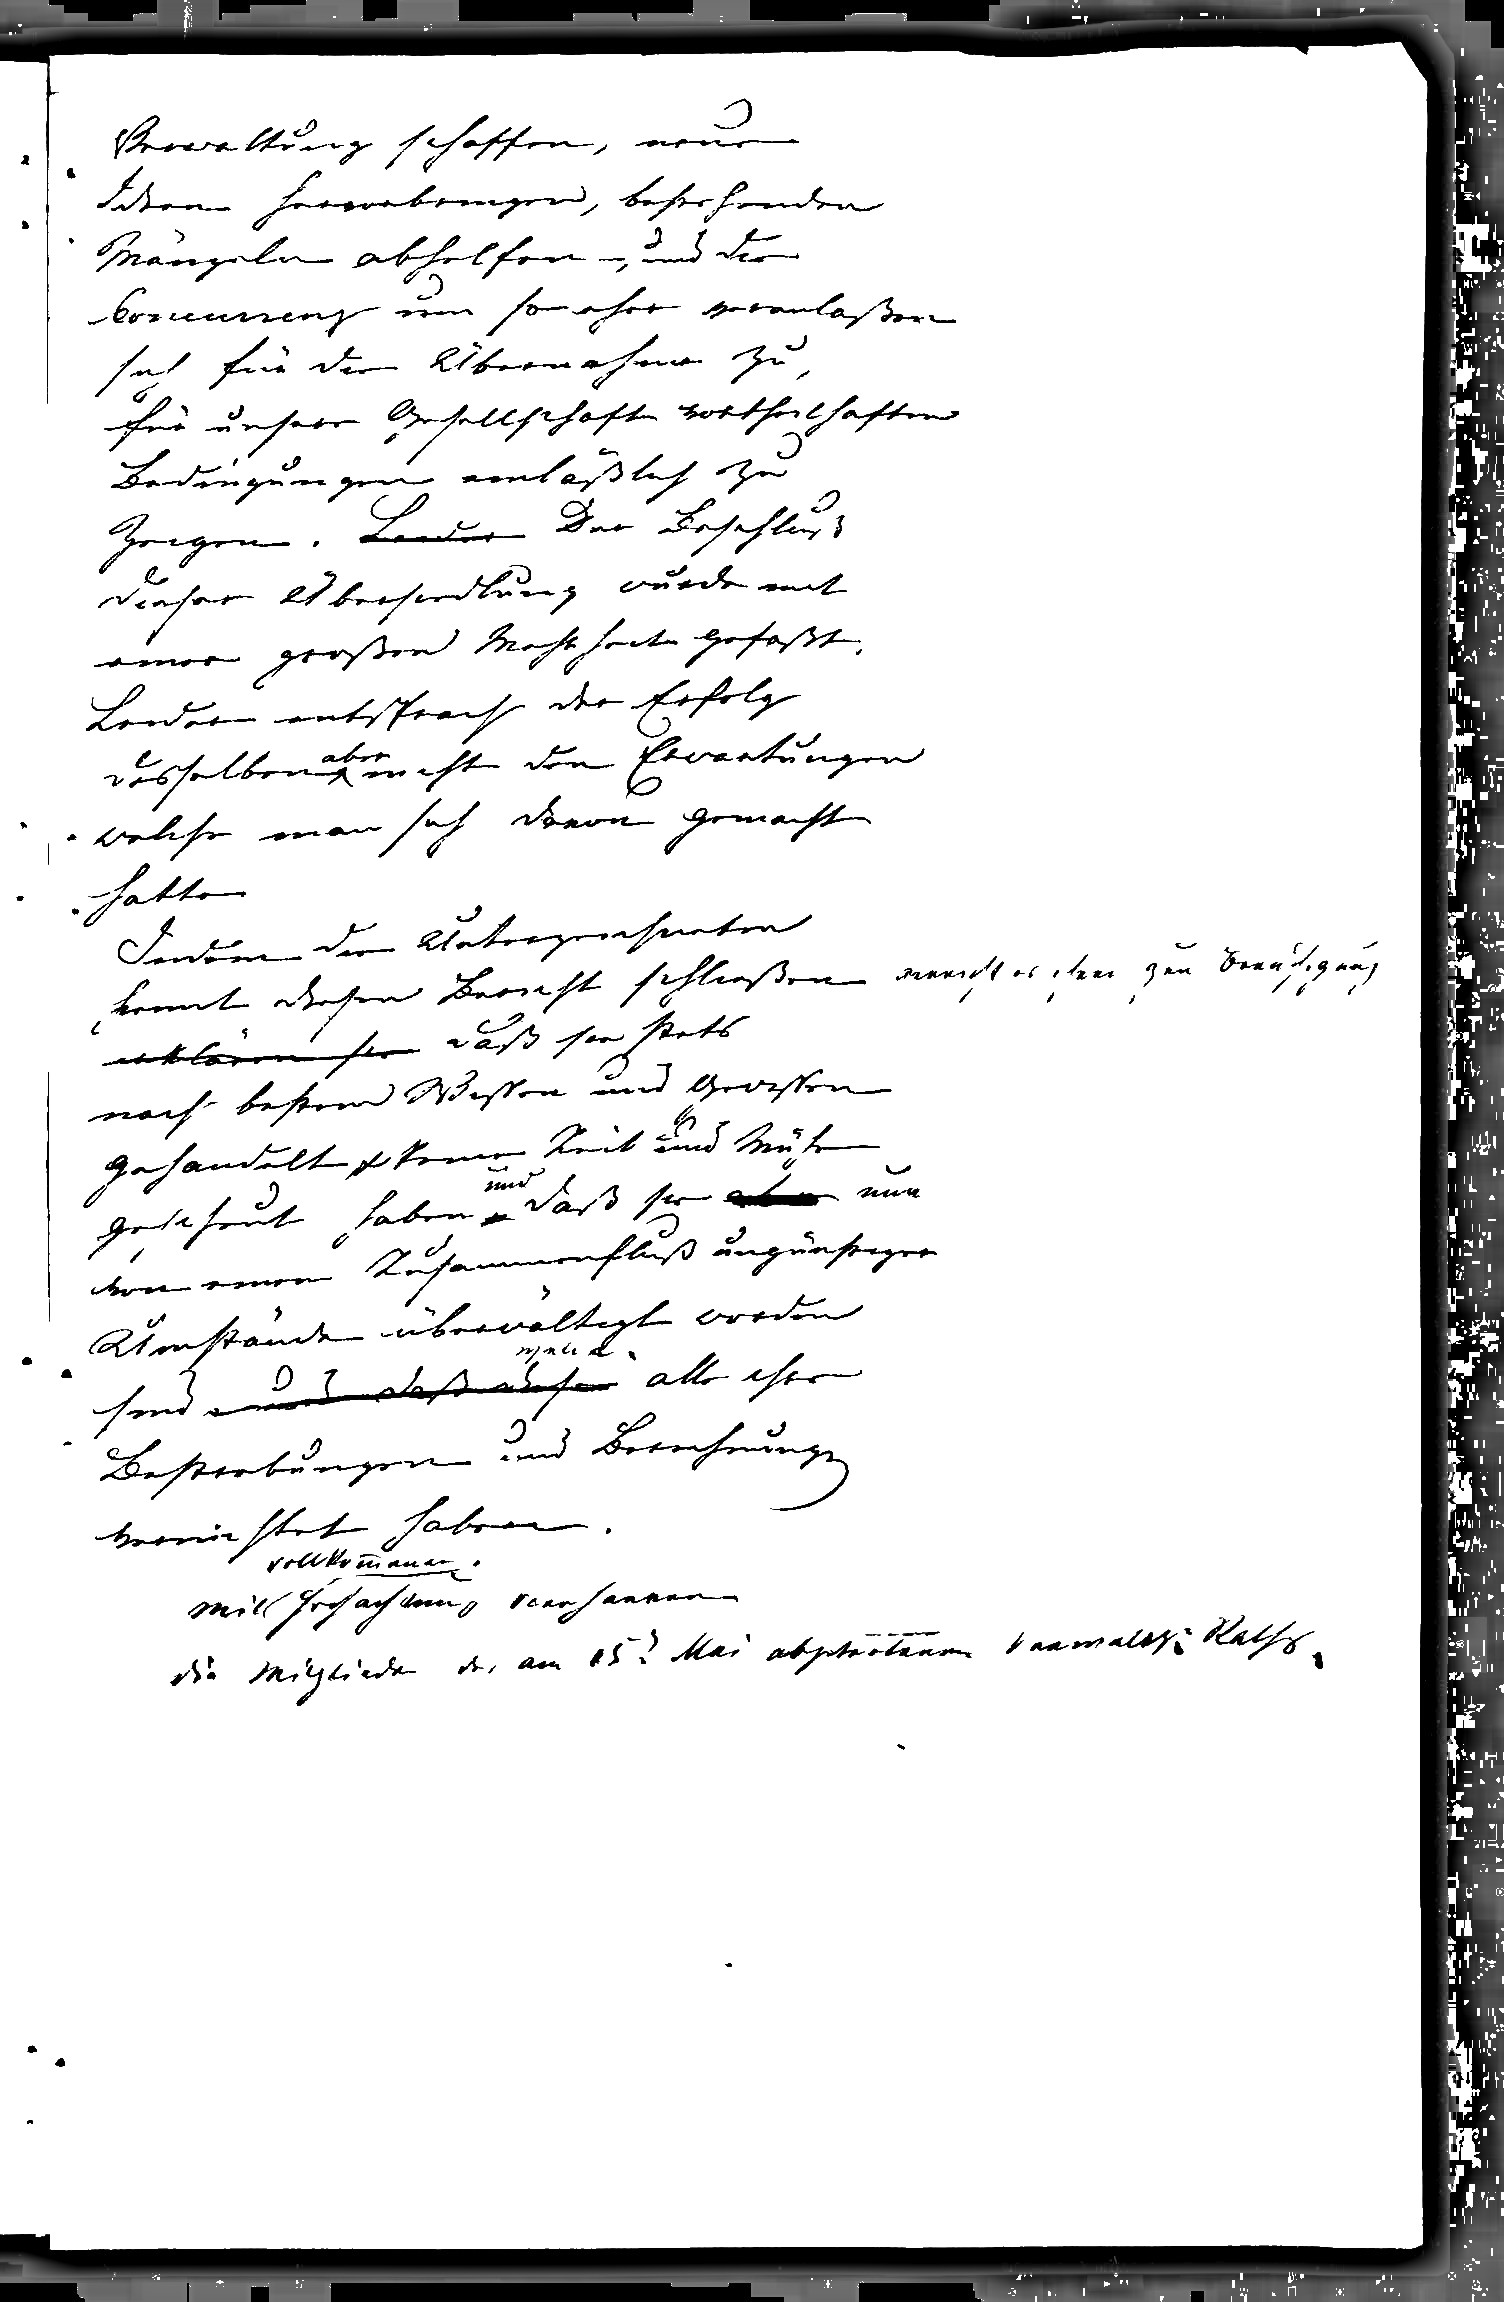 Verwaltung schaffen, neue
Ideen hervorbringen, bestehenden
Mängeln abhelfen, und die
Concurrenz um so eher veranlaßen
sich für die Übernahme zu,
für unsere Gesellschaft vortheilhaften
Bedingungen anläßlich zu
zeigen. Leider Der Beschluß
dieser Übersiedlung wurde mit
einer großen Mehrheit gefaßt.
Leider entsprach der Erfolg
desselben aber nicht den Erwartungen
welche man sich davon gemacht
hatte
Indem die Unterzeichneten
hiemit diesen Bericht schließen gereicht es ihnen zur Beruhigung
erklären sie daß sie stets
nach bestem Wissen und Gewissen
gehandelt & keine Zeit und Mühe
gescheut haben und daß sie aber nun
von einem Zusammenfluß ungünstiger
Umstände überwältigt worden
sind und daß diese welche alle ihre
Bestrebungen und Berechnungen
vernichtet haben.
vollkommener
mit Hochachtung verharren
die Mitglieder des am 15. Mai abgetretenen Verwaltgs Raths.